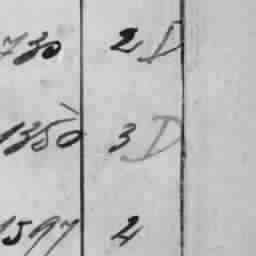 730 2 D
1350 3 D
1597 2